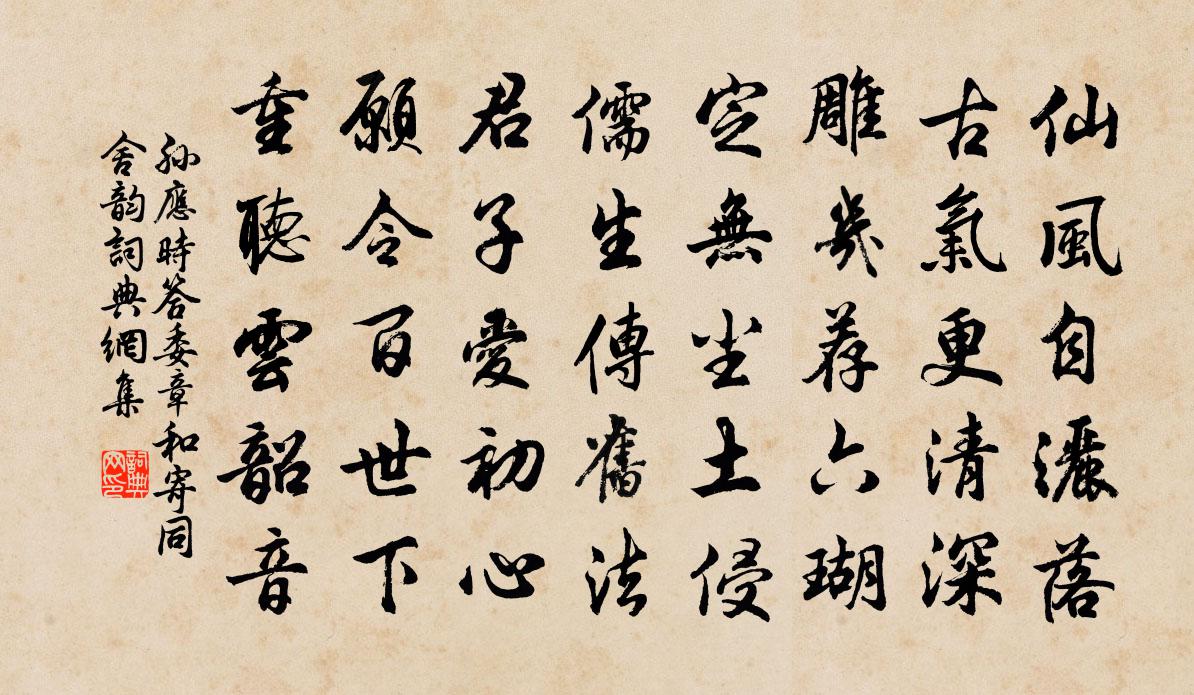 仙風自灑落
古氣更清深
雕幾荐六瑚
定無坐土侵
儒生傳舊法
君子愛初心
願令百世下
重聽雲韶音
孫應時答委章和寄同
舍韵詞典網集
詞典
网印